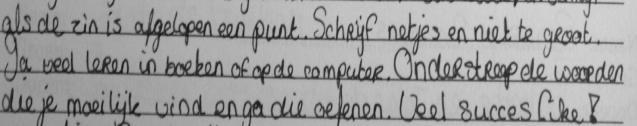 als de zin is afgelopen een punt. Schrijf netjes en niet te groot.
Ga veel lezen in boeken of op de computer. Onderstreep de woorden
die je moeilijk vind en ga die oefenen. Veel succes